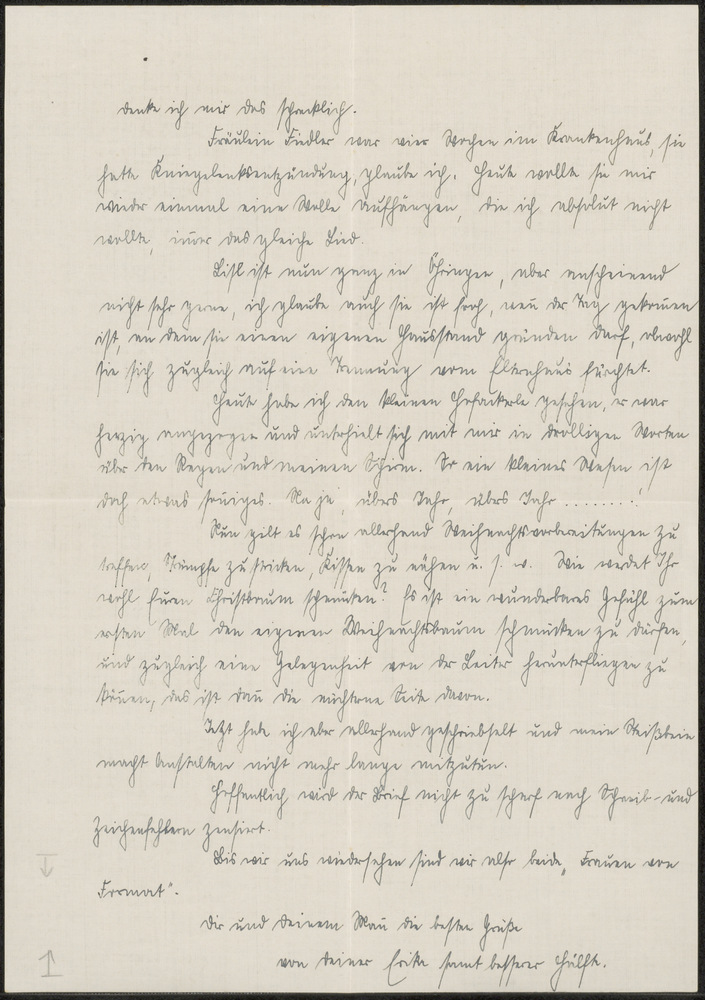 denke ich mir das schrecklich.
Fräulein Fiedler war vier Wochen im Krankenhaus, sie
hatte Kniegelenksentzündung, glaube ich. Heute wollte sie mir
wieder einmal eine Wolle aufhängen, die ich absolut nicht
wollte, im̅er das gleiche Lied.
Lisl ist nun ganz in Öhringen, aber anscheinend
nicht sehr gerne, ich glaube auch sie ist froh, wen̅ der Tag gekom̅en
ist, an dem sie einen eigenen Hausstand gründen darf, obwohl
sie sich zugleich auf eine Trennung vom Elternhaus fürchtet.
Heute habe ich den kleinen gesehen, er war
herzig angezogen und unterhielt sich mit mir in drolligen Worten
über den Regen und meinen Schirm. So ein kleines Wesen ist
doch etwas sonniges. Na ja, übers Jahr, übers Jahr ........!
Nun gilt es schon allerhand Weihnachtsvorbereitungen zu
treffen, Strümpfe zu stricken, Kissen zu nähen u. s. w. Wie werdet Ihr
wohl Euren Christbaum schmücken? Es ist ein wunderbares Gefühl zum
ersten Mal den eigenen Weihnachtsbaum schmücken zu dürfen,
und zugleich eine Gelegenheit von der Leiter herunterfliegen zu
kön̅en, das ist dan̅ die nüchterne Seite davon.
Jetzt habe ich aber allerhand geschriebselt und mein Steißbein
macht Anstalten nicht mehr lange mitzutun.
Hoffentlich wird der Brief nicht zu scharf nach Schreib- und
Zeichenfehlern zensiert.
Bis wir uns wiedersehen sind wir also beide „Frauen von
Format".
Dir und Deinem Man̅ die besten Grüße
von Deiner Erika samt besserer Hälfte.